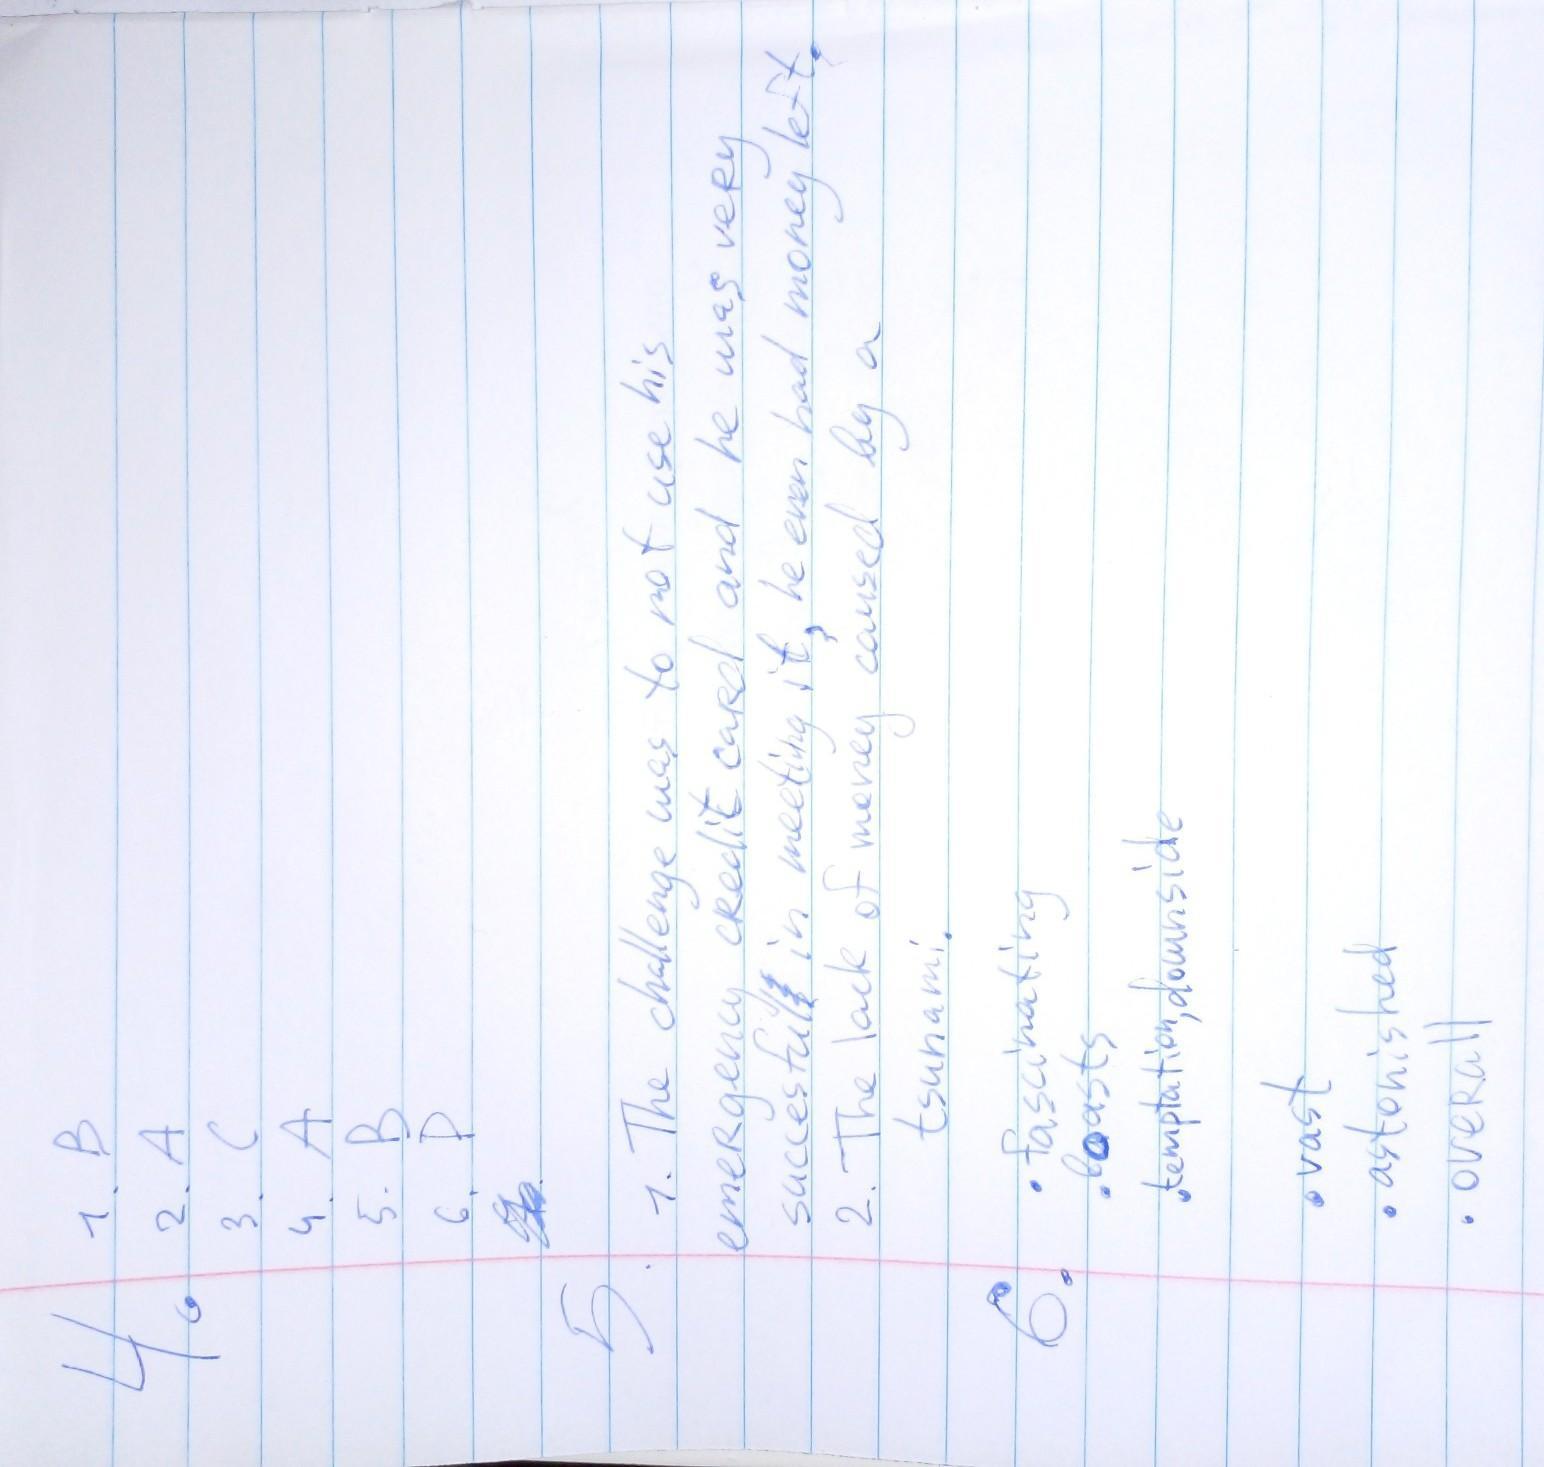 4.
1. B
2. A
3. C
4. A
5. B
6. D
5.
1. The challenge was to not use his
emergency credit card and he was very
succesful in meeting it, he even had money left.
2. The lack of money caused by a
tsunami.
6.
• fascinating
• boasts
• temptation, downside
• vast
• astonished
• overall